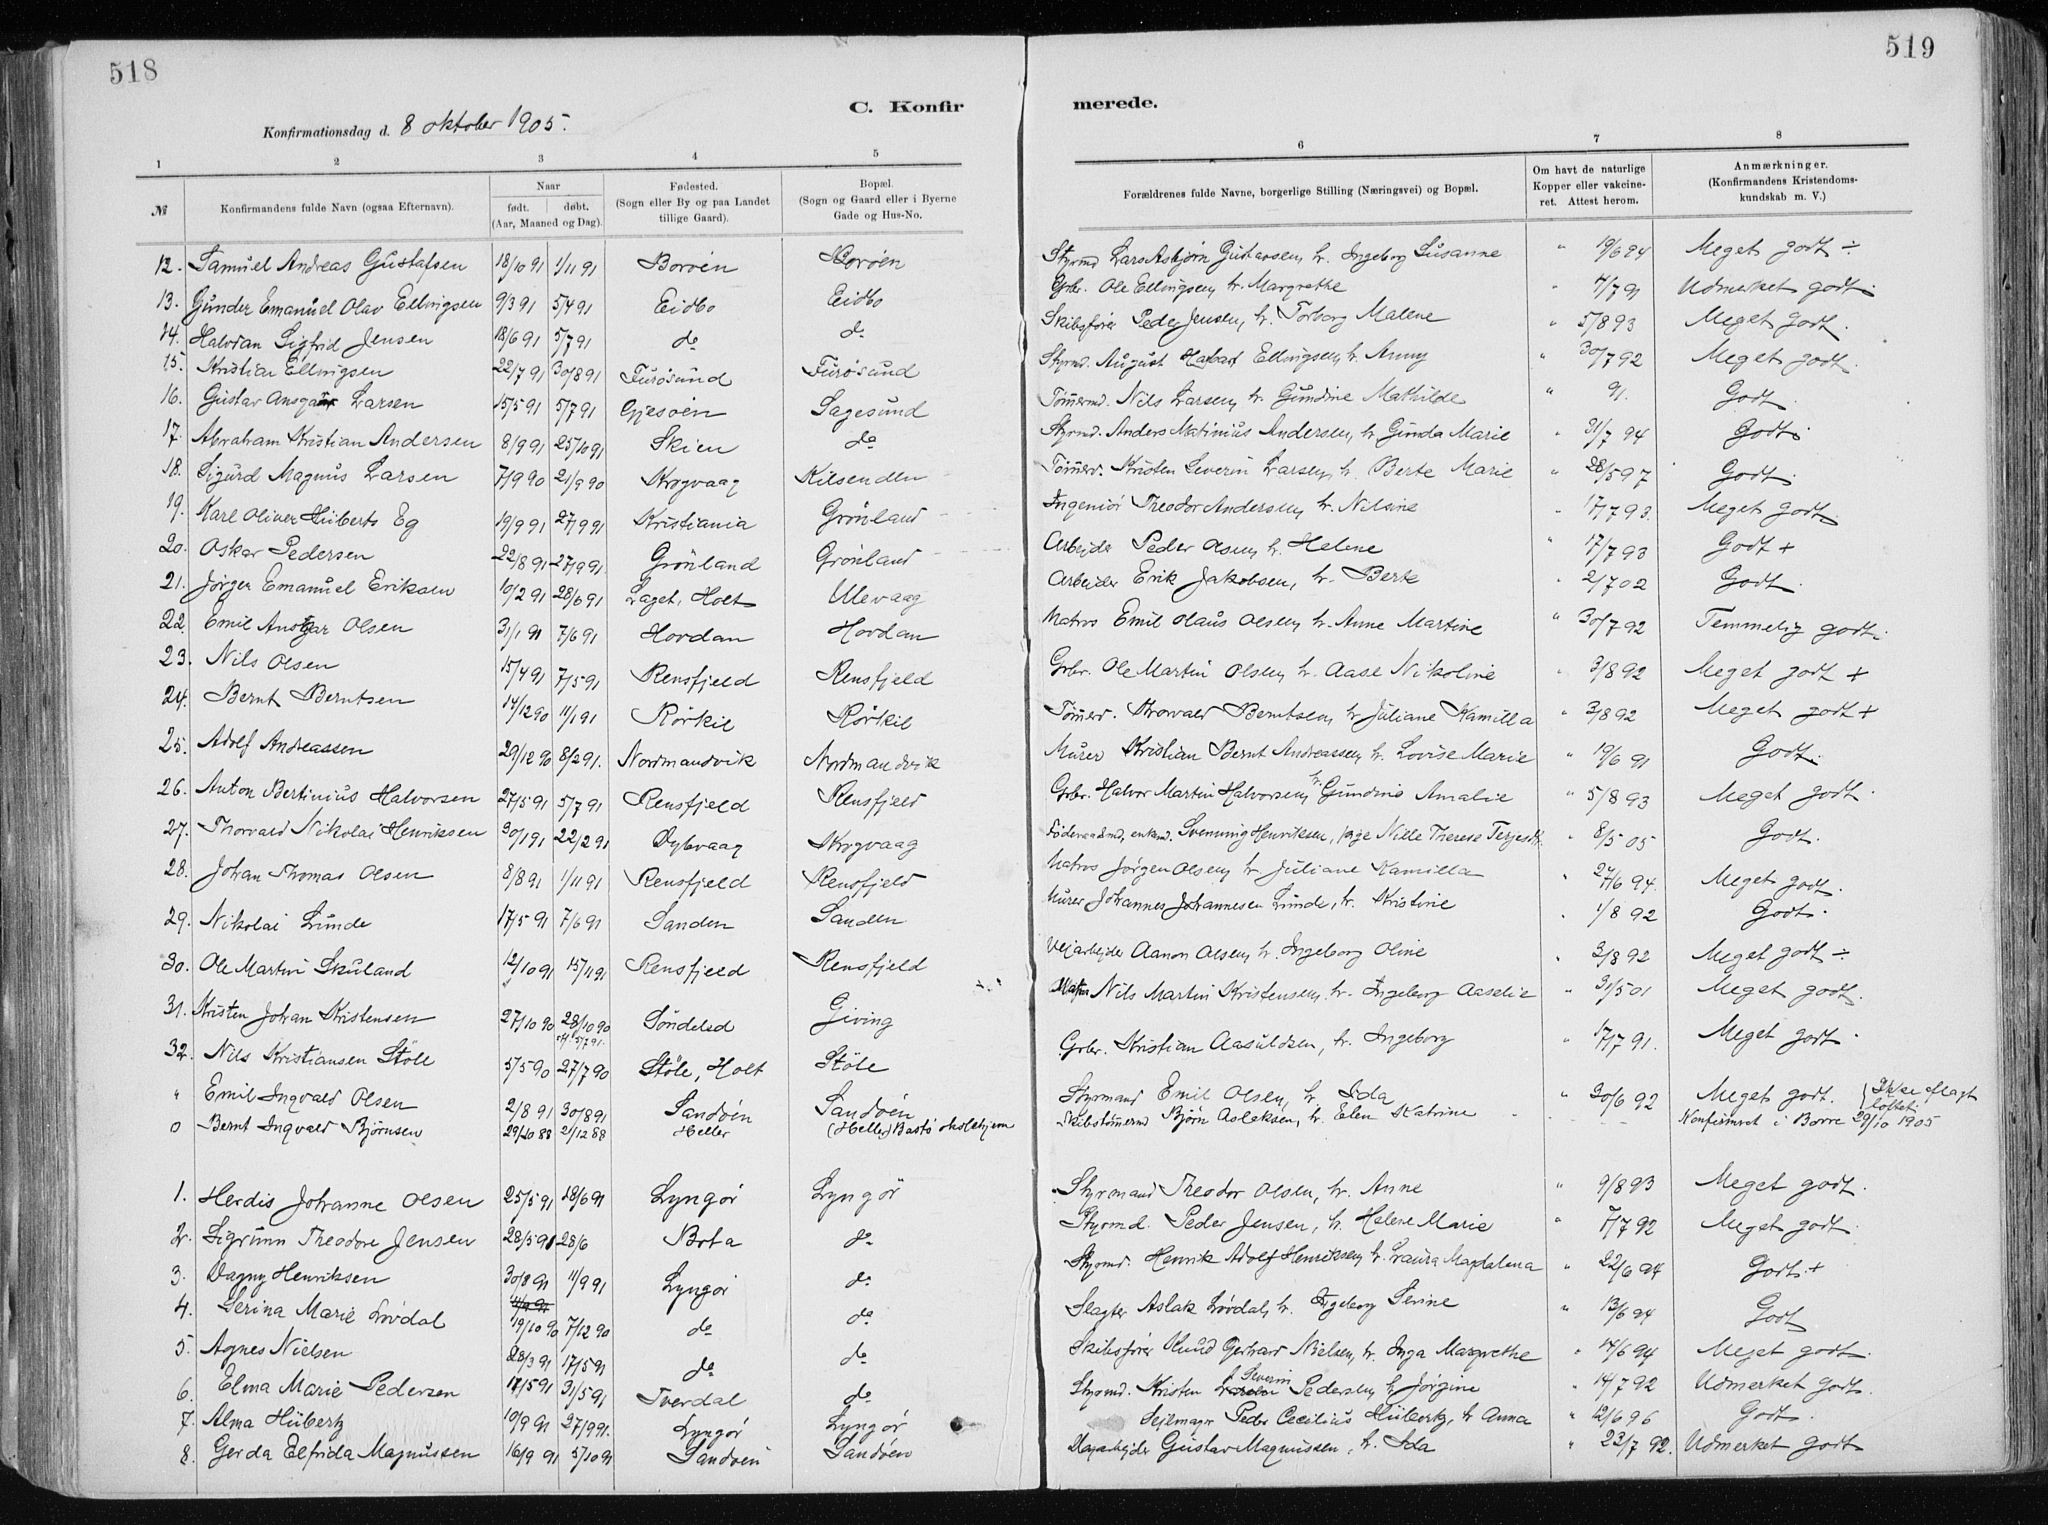 518
519
C. Konfir
merede.
Konfirmationsdag d. 8 oktober 1905.
1 2 3 4 5 6 7 8
№ Konfirmandens fulde Navn (ogsaa Efternavn). Naar født. døbt. (Aar, Maaned og Dag). Fødested. (Sogn eller By og paa Landet tillige Gaard). Bopæl. (Sogn og Gaard eller i Byerne Gade og Hus-No. Forældrenes fulde Navne, borgerlige Stilling (Næringsvei) og Bopæl. Om havt de naturlige Kopper eller vakcineret. Attest herom. Anmærkninger. (Konfirmandens Kristendomskundskab m. V.)
12. Samuel Andreas Gustafsen 18/10 91 1/11 91 Borøen Borøen Styrmd Lars Asbjørn Gustavsen, h. Ingeborg Susanne " 19/6 94 Meget godt ÷
13. Gunder Emanuel Olav Ellingsen 9/3 91 5/4 91 Eidbo Eidbo Grbr. Ole Ellingsen, h. Margrethe " 7/7 91 Udmerket godt.
14. Halvdan Sigfrid Jensen 18/6 91 5/7 91 do do Skibsfører Peder Jensen, h. Torborg Malene " 5/8 93 Meget godt.
15. Kristian Ellingsen 22/7 91 30/8 91 Furøsund Furøsund Styrmd. August Ellingsen, h. Anny " 30/7 92 Meget godt.
16. Gustav Ansgar Larsen 15/5 91 5/7 91 Gjesøen Sagesund Tømermd. Nils Larsen, h. Gundine Mathilde " 91. Godt.
17. Abraham Kristian Andersen 8/9 91 25/10 91 Skien do Styrmd. Anders Matinius Andersen, h. Gunda Marie " 31/7 94 Godt.
18. Sigurd Magnus Larsen 7/9 90 21/9 90 Krogvaag Kilsenden Tømerm. Kristen Severin Larsen, h. Berte Marie " 28/5 97 Godt.
19. Karl Oliver Huberts Eg 19/9 91 27/9 91 Kristiania Grønland Ingeniør Theodor Andersen, h. Nilsine " 17/7 93. Meget godt.
20. Oskar Pedersen 22/8 91 27/9 91. Grønland Grønland Arbejder Peder Olsen, h. Helene " 17/7 93 Godt +
21. Jørgen Emanuel Eriksen 10/2 91 28/6 91 Laget, Holt Ulevaag Arbeider Erik Jakobsen, h. Berte " 2/7 02 Godt.
22. Emil Ansgar Olsen 31/1 91 7/6 91 Hovdan Hovdan Matros Emil Olaus Olsen, h. Anne Martine " 30/7 92 Temmelig godt.
23. Nils Olsen 15/4 91 7/5 91 Rensfjeld Rensfjeld Grbr. Ole Martin Olsen, h. Aase Nikoline " 3/8 92 Meget godt +
24. Bernt Berntsen 14/12 90 11/1 91 Rørkil Rørkil Tømerm. Torvald Berntsen, h. Juliane Kamilla " 3/8 92 Meget godt +
25. Adolf Andreassen 29/12 90 8/2 91. Nordmandvik Nordmandvik Murer Kristian Bernt Andreassen, h. Lovise Marie " 19/6 91 Godt.
26. Anton Bertinius Halvorsen 27/5 91 5/7 91 Rensfjeld Rensfjeld Grbr. Halvor Martin Halvorsen, h. Gundine Amalie " 5/8 93 Meget godt.
27. Thorvald Nikolai Henriksen 30/1 91 22/2 91 Dybvaag Krogvaag Føderaadsmd, enkmd. Svenning Henriksen, pige Nille Therese Terjesdtr. " 8/5 05 Godt.
28. Johan Thomas Olsen 8/8 91 1/11 91 Rensfjeld Rensfjeld Matros Jørgen Olsen, h. Juliane Kamilla " 27/6 94. Meget godt.
29. Nikolai Lunde 17/5 91 7/6 91 Sanden Sanden Murer Johannes Johannesen Lunde, h. Kristine " 1/8 92 Godt.
30. Ole Martin Skuland 12/10 91 15/11 91 Rensfjeld Rensfjeld Veiarbejder Aanon Olsen, h. Ingeborg Oline " 3/8 92 Meget godt ÷
31. Kristen Johan Kristensen 27/10 90 28/10 90 5/7 91. Søndeled Giving Nils Martin Kristensen, h. Ingeborg Aaselie " 31/5 01 Meget godt.
32. Nils Kristiansen Støle 5/5 90 27/7 90 Støle, Holt Støle Grbr. Kristian Aasuldsen, h. Ingeborg " 17/7 91. Meget godt.
" Emil Ingvald Olsen 2/8 91 30/8 91 Sandøen Sandøen Styrmand Emil Olsen, h. Ida " 30/6 92 Meget godt. (Ikke aflagt løftet.
0 Bernt Ingvald Bjørnsen 29/10 88 2/12 88 Heller (Heller) Bastø skolehjem Skibstømermd Bjørn Aslaksen, h. Elen Katrine Konfirmeret i Borre 29/10 1905
1. Herdis Johanne Olsen 25/5 91 28/6 91 Lyngør Lyngør Styrmand Theodor Olsen, h. Anne " 9/8 93 Meget godt.
2. Sigrunn Theodore Jensen 28/5 91 28/6 Bota do Styrmd. Peder Jensen, h. Helene Marie " 7/7 92 Meget godt.
3. Dagny Henriksen 30/8 91 11/9 91 Lyngør do Styrmd. Henrik Adolf Henriksen, h. Laura Magdalena " 22/6 94 Godt. +
4. Serina Marie Løvdal 19/10 90 7/12 90 do do Slagter Aslak Løvdal, h. Ingeborg Serine " 13/6 94 Godt
5. Agnes Nielsen 28/3 91 17/5 91 do do Skibsfører Knud Gerhard Nielsen, h. Inga Margrethe " 14/6 94 Meget godt.
6. Elma Marie Pedersen 17/5 91 31/5 91 Tverdal do Styrmd. Kristen Severin Pedersen, h. Jørgine " 14/7 92 Udmerket godt.
7. Alma Hubertz 10/9 91 27/9 91. Lyngør Lyngør Sejlmagr Peder Cecilius Hubertz, h. Anna " 12/6 96 Godt.
8. Gerda Elfrida Magnussen 16/9 91 5/10 91 Sandøen Sandøen Gustav Magnussen, h. Ida " 23/7 92. Udmerket godt